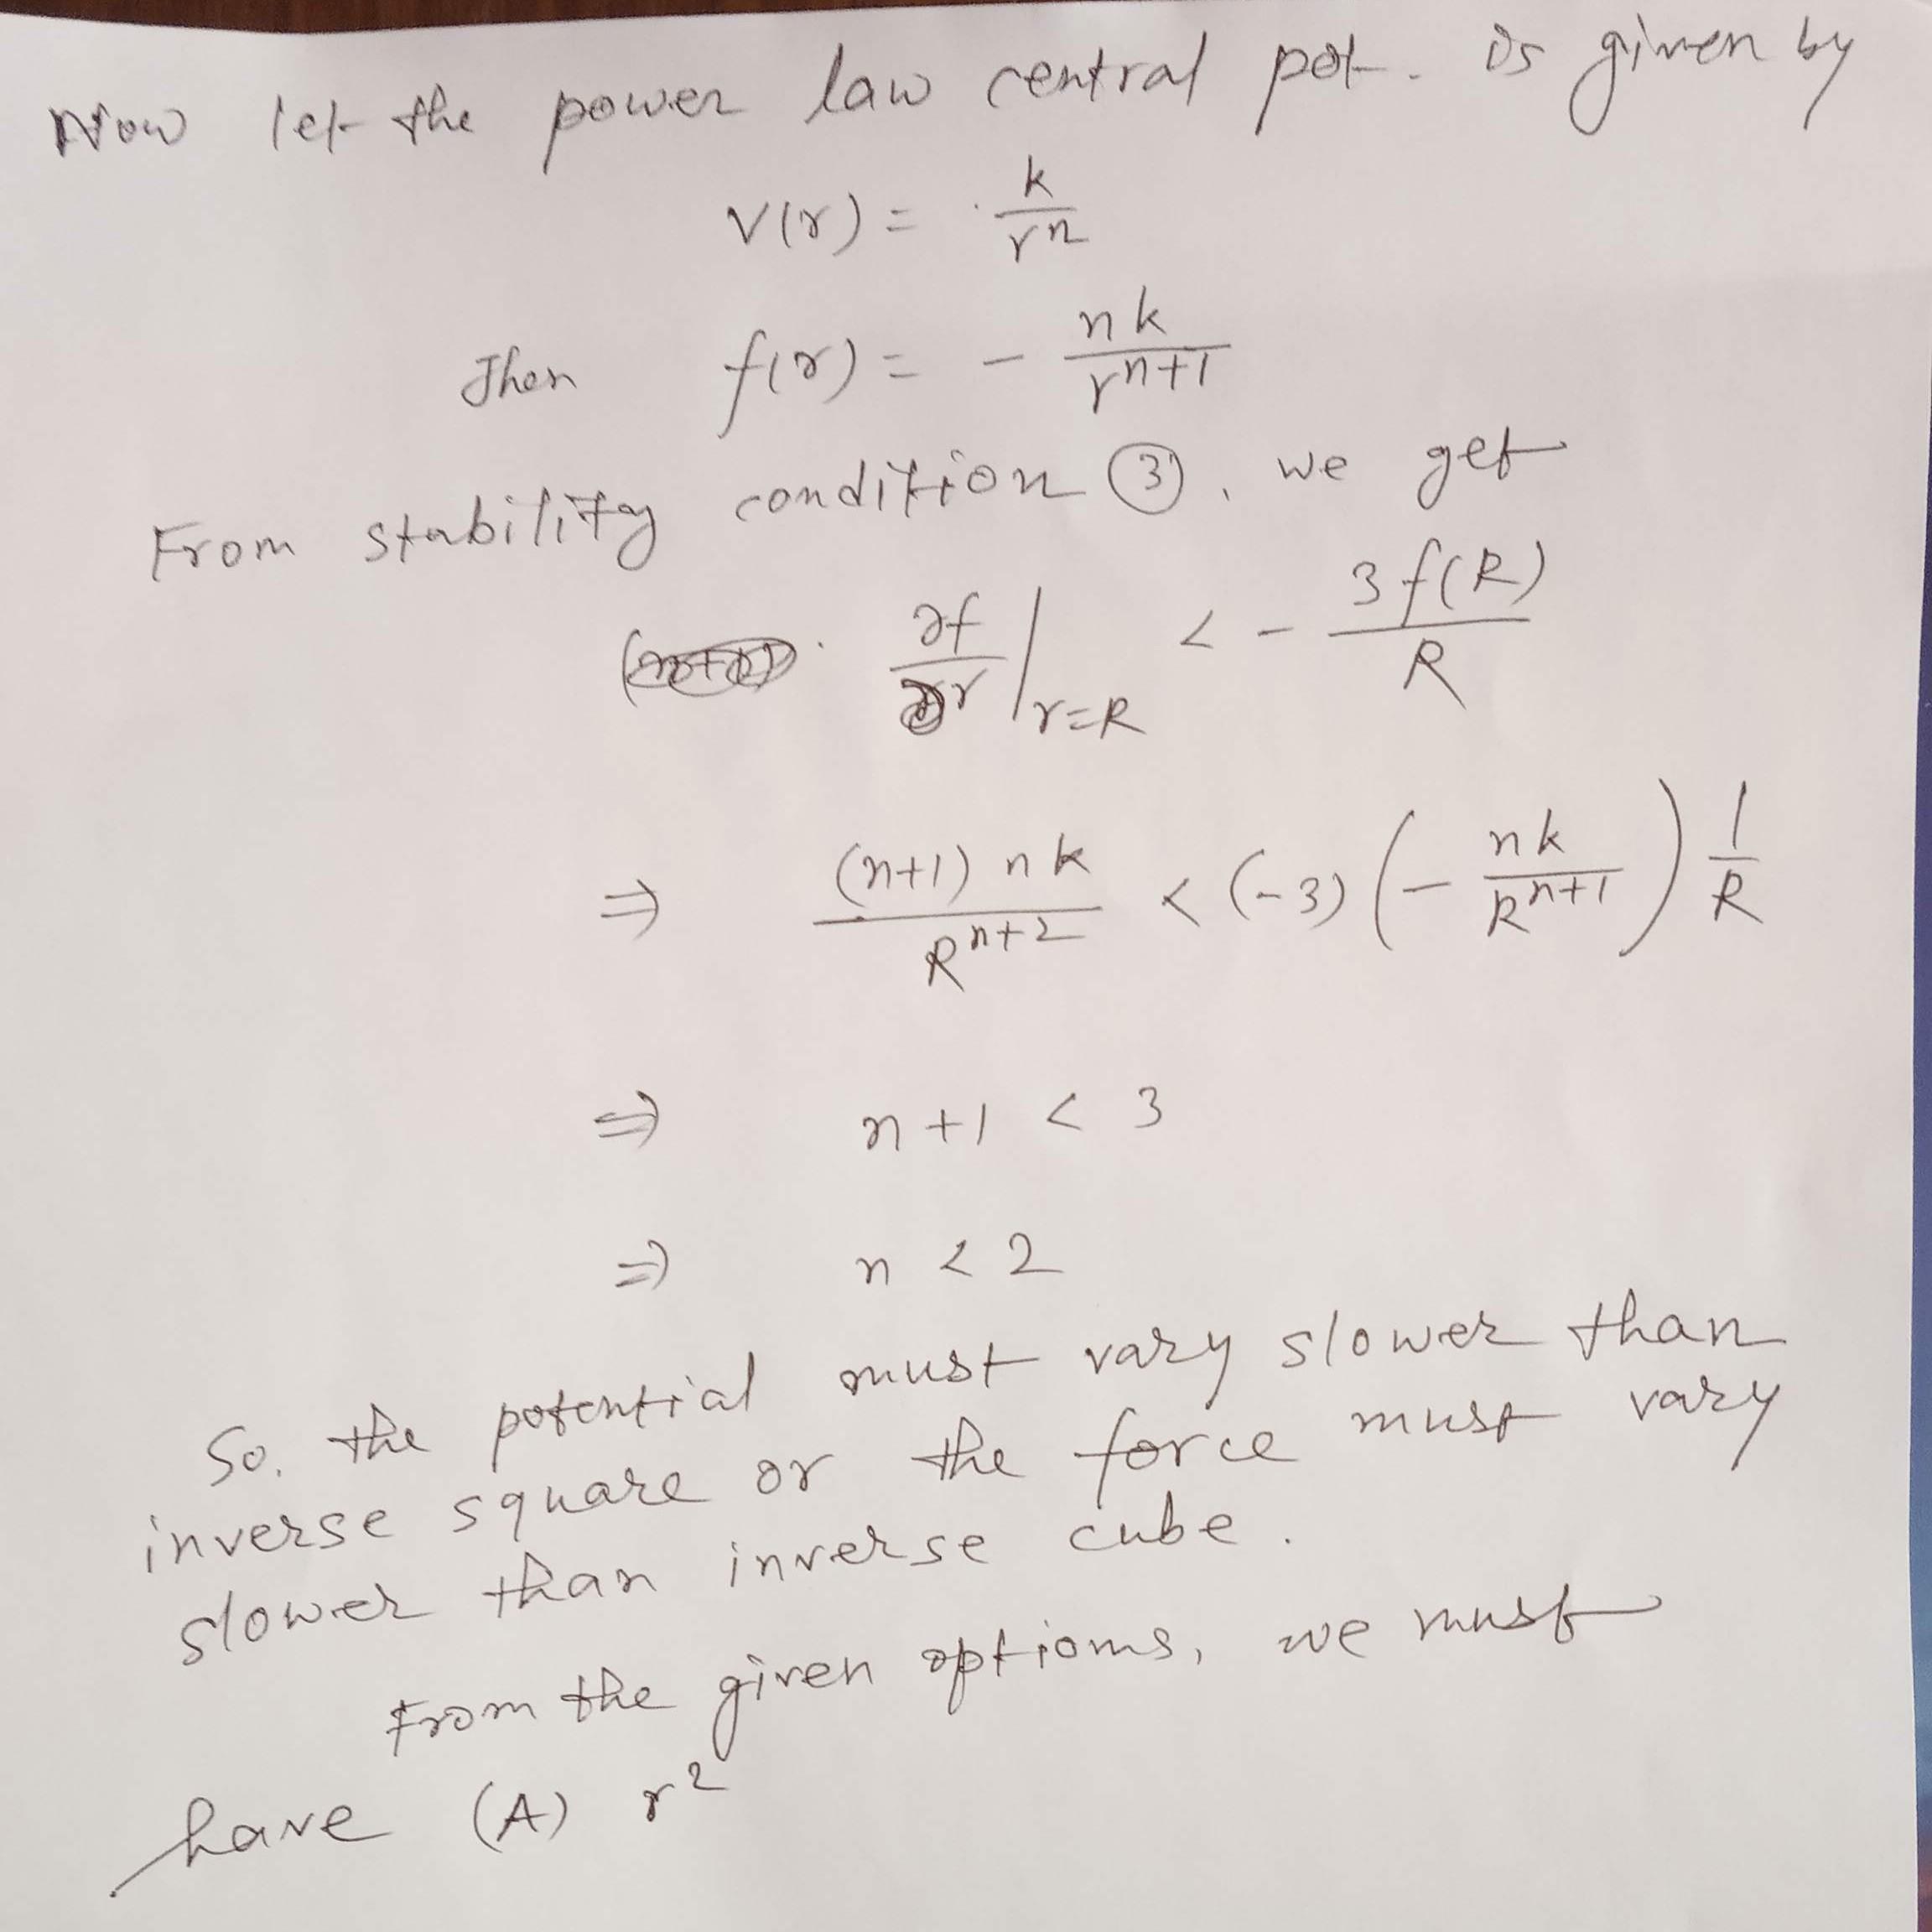 Now let the power law central pot. is given by
V(r) = k/r^n
Then f(r) = - nk/r^{n+1}
From stability condition ③, we get
∂f/∂r |_{r=R} < - 3f(R)/R
⇒ (n+1)nk/R^{n+2} < (-3)(- nk/R^{n+1}) 1/R
⇒ n+1 < 3
⇒ n < 2
So, the potential must vary slower than
inverse square or the force must vary
slower than inverse cube.
From the given options, we must
have (A) r^2